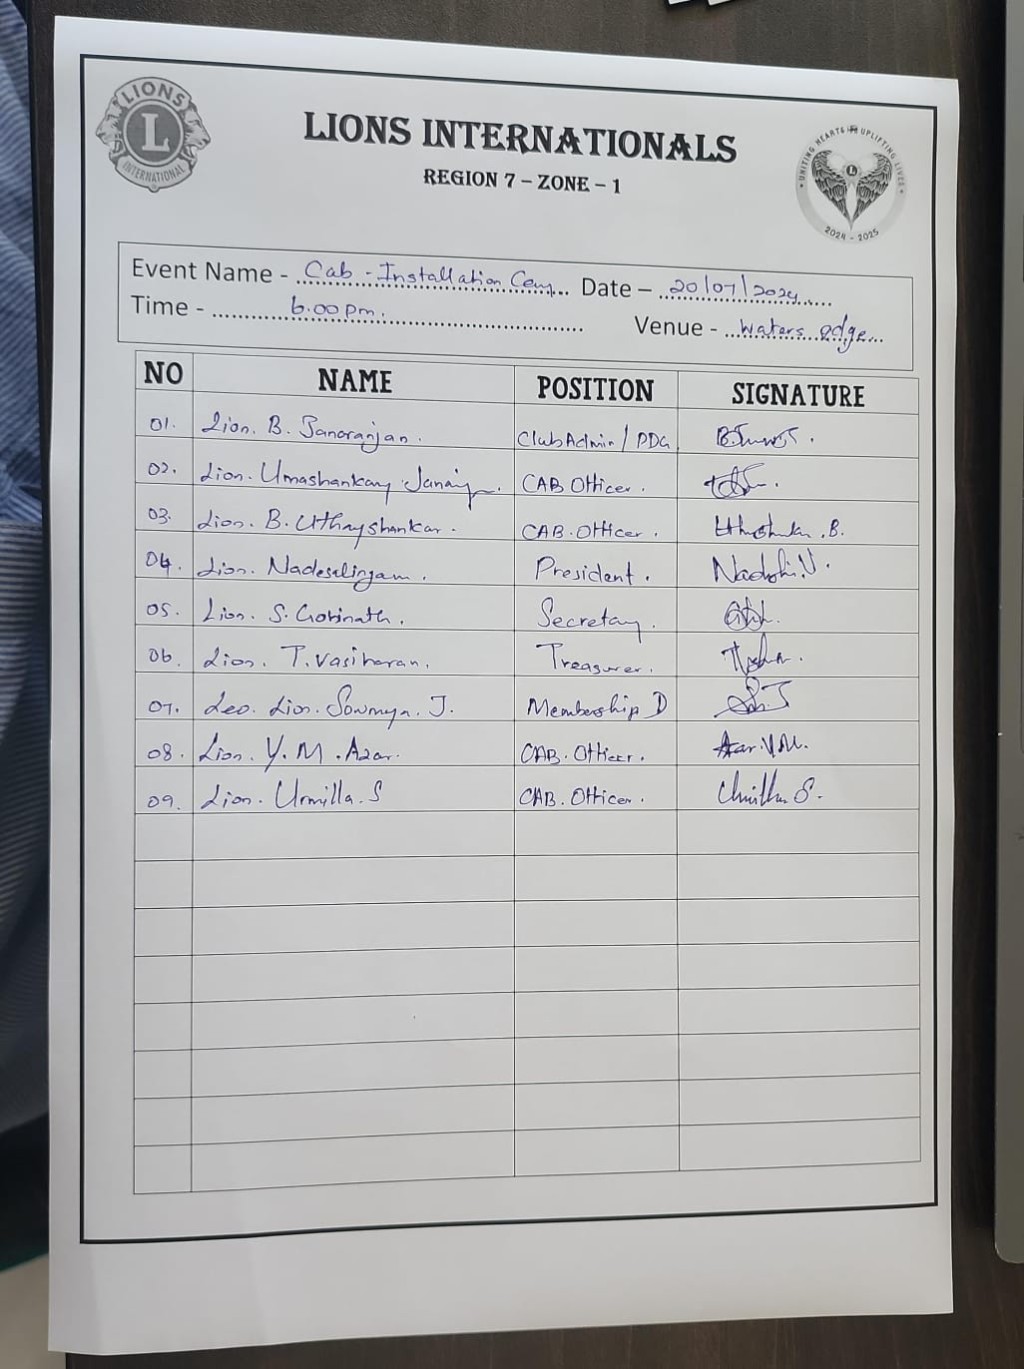 LIONS
L
INTERNATIONAL
LIONS INTERNATIONALS
REGION 7 – ZONE – 1
UNITING HEARTS UPLIFTING LIVES
L
2024 - 2025
Event Name - Cab - Installation Date – 20/07/2024
Time - 6.00 pm. Venue - Waters edge
NO NAME POSITION SIGNATURE
01. Lion. B. Janaranjan. Club Admin / PDG
02. Lion. Umashankary CAB Officer.
03. Lion. B. Uthayshankar. CAB. Officer. B.
04. Lion. Nadeselingam. President.
05. Lion. S. Gobinath. Secretary.
06. Lion. T. Vasiharan. Treasurer.
07. Leo. Lion. Sowmya. J. Membership D
08. Lion. Y. M. Azar. CAB. Officer.
09. Lion. Urmilla. S CAB. Officer. S.